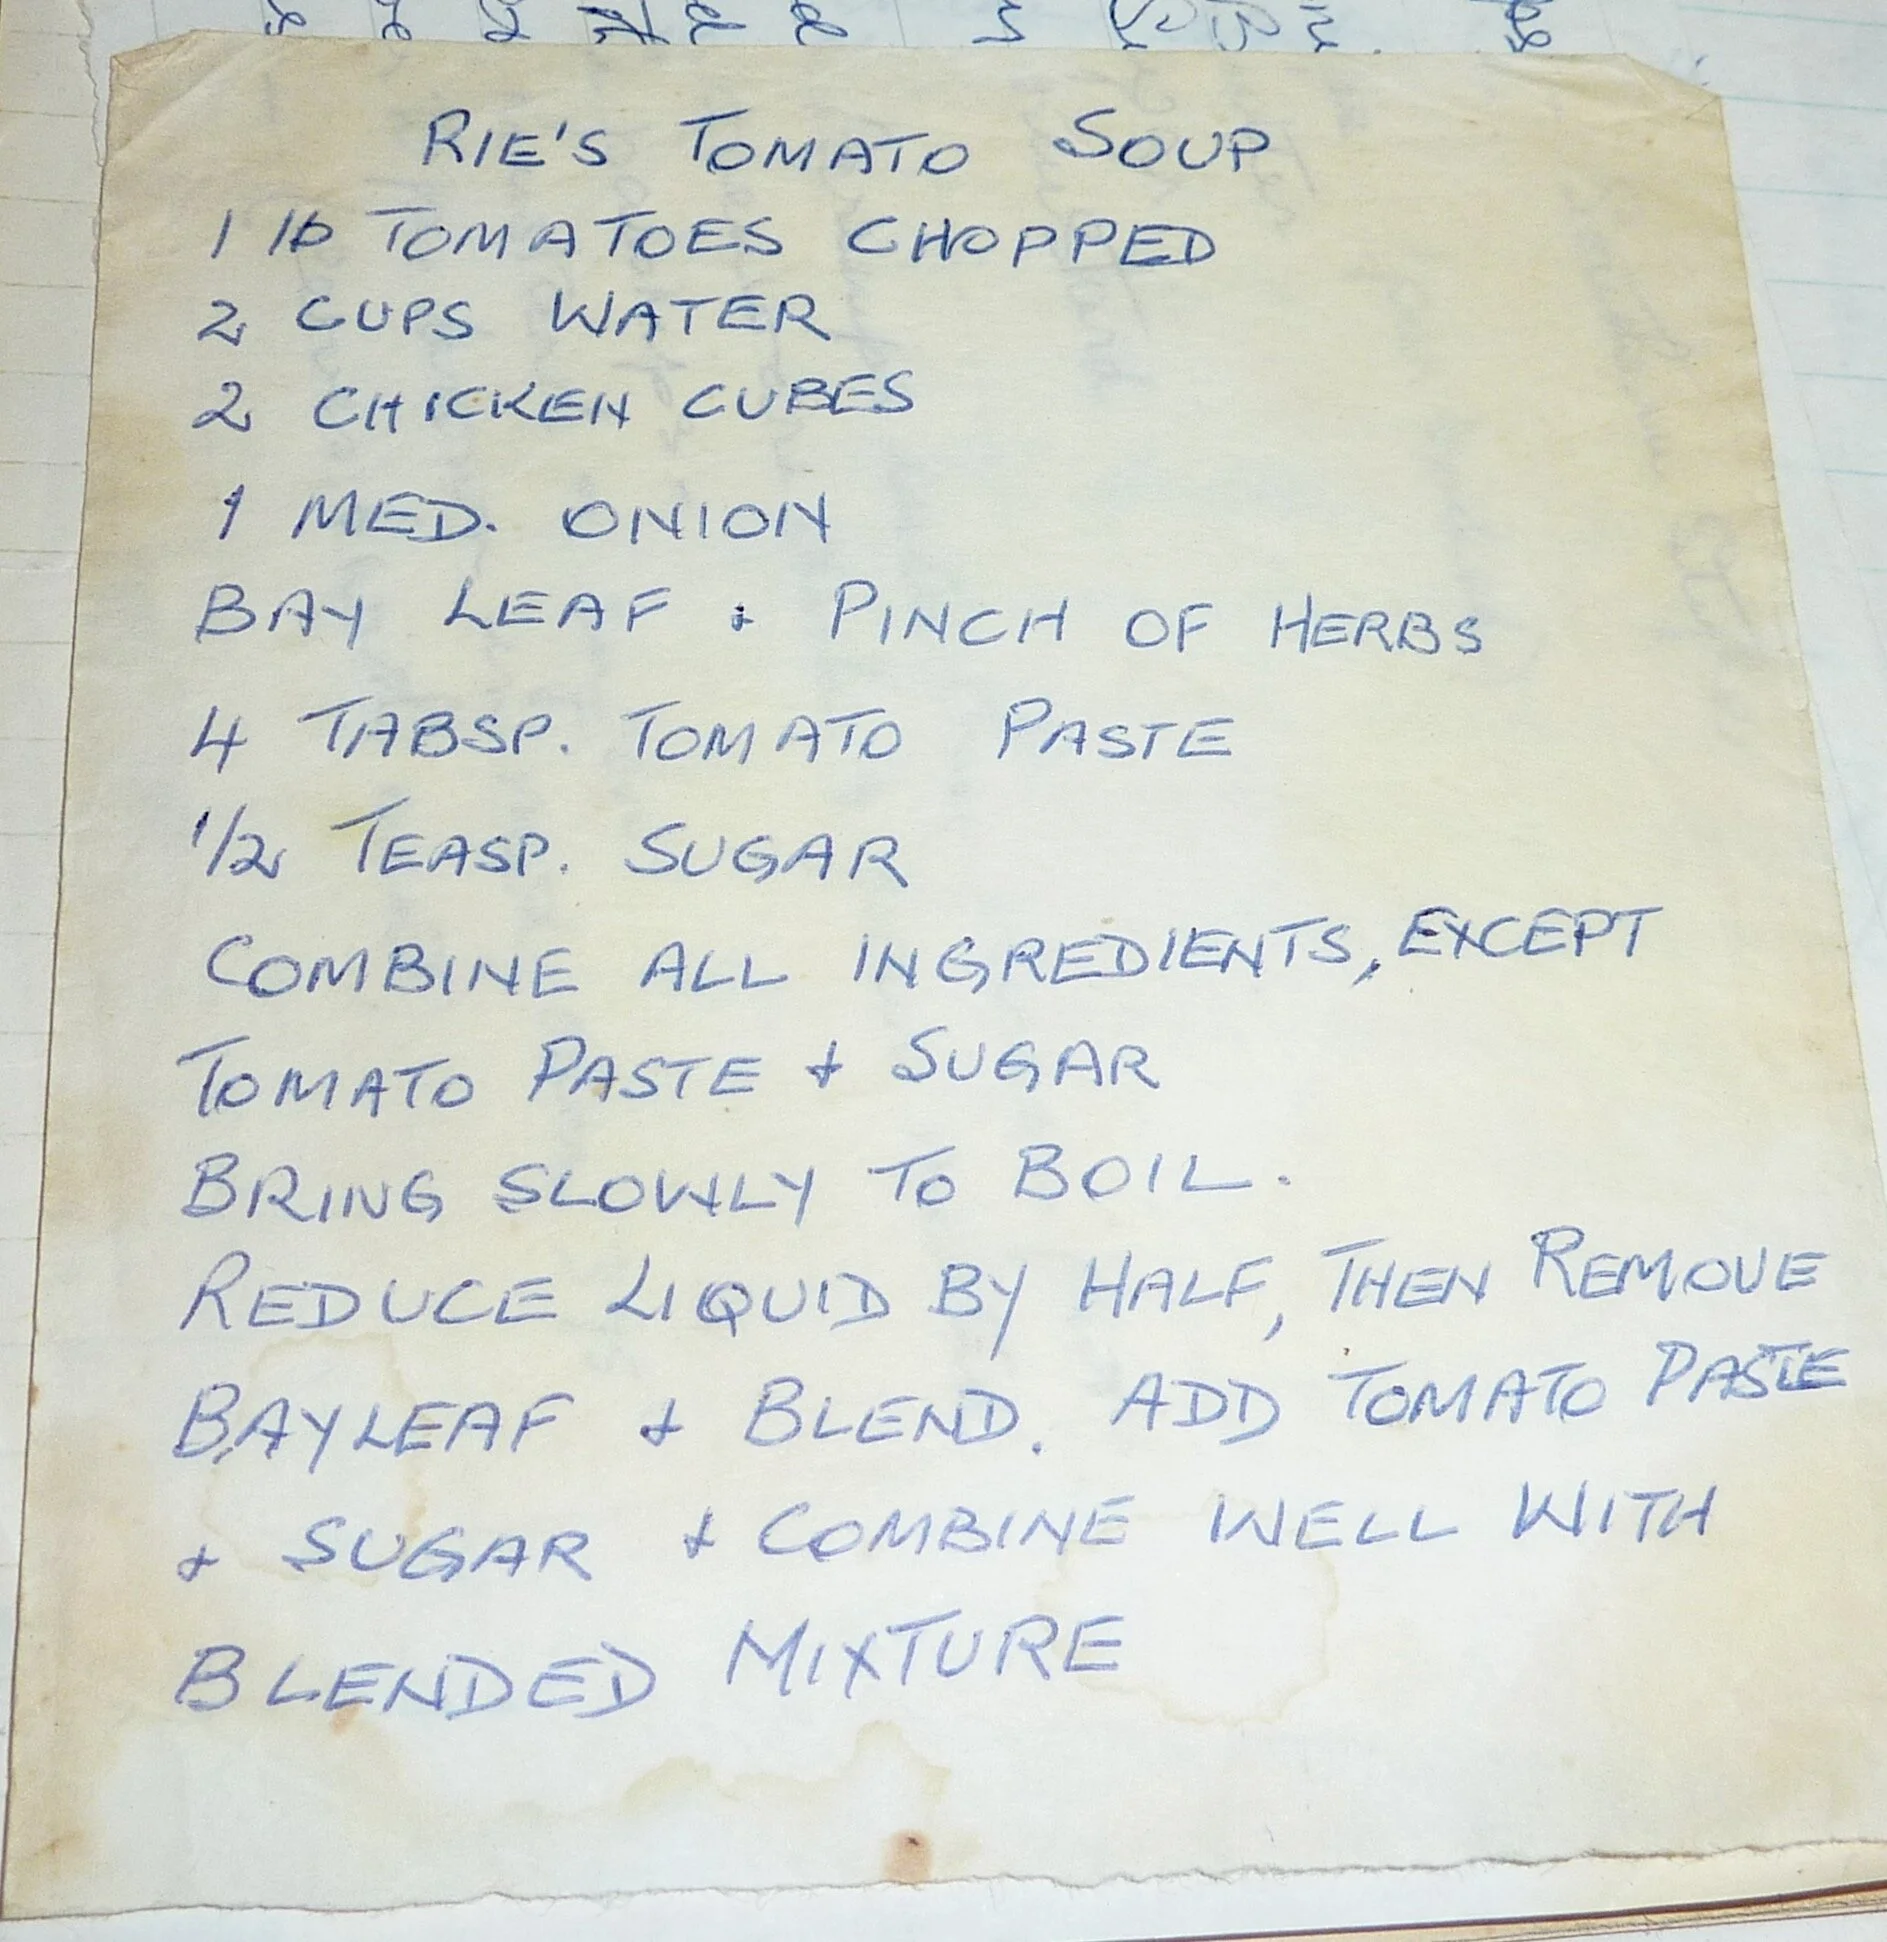 RIE'S TOMATO SOUP
1 lb TOMATOES CHOPPED
2 CUPS WATER
2 CHICKEN CUBES
1 MED. ONION
BAY LEAF & PINCH OF HERBS
4 TABSP. TOMATO PASTE
1/2 TEASP. SUGAR
COMBINE ALL INGREDIENTS, EXCEPT
TOMATO PASTE & SUGAR
BRING SLOWLY TO BOIL.
REDUCE LIQUID BY HALF, THEN REMOVE
BAYLEAF & BLEND. ADD TOMATO PASTE
& SUGAR & COMBINE WELL WITH
BLENDED MIXTURE